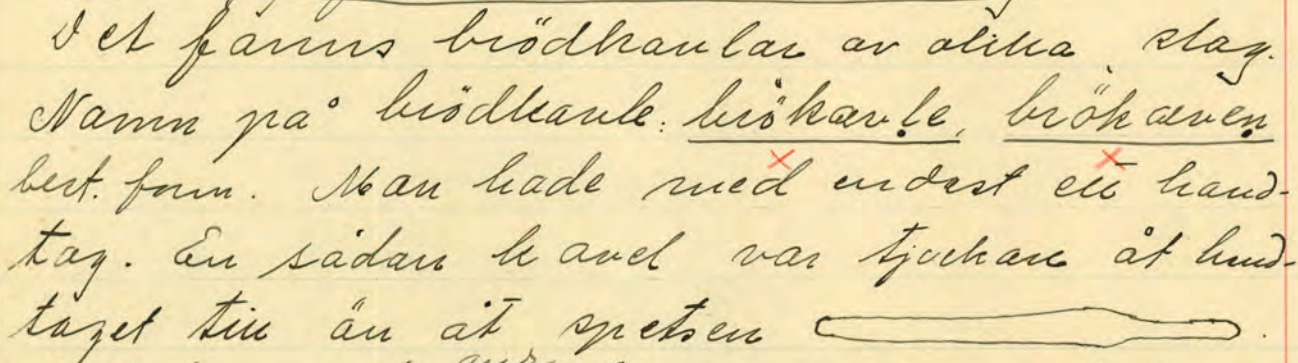 Det fanns brödkavlar av olika slag.
Namn på brödkavle: brökavḷe, brökæveṇ
best. form. Man hade med endast ett hand-
tag. En sådan kavel var tjockare åt hand-
taget till än åt spetsen